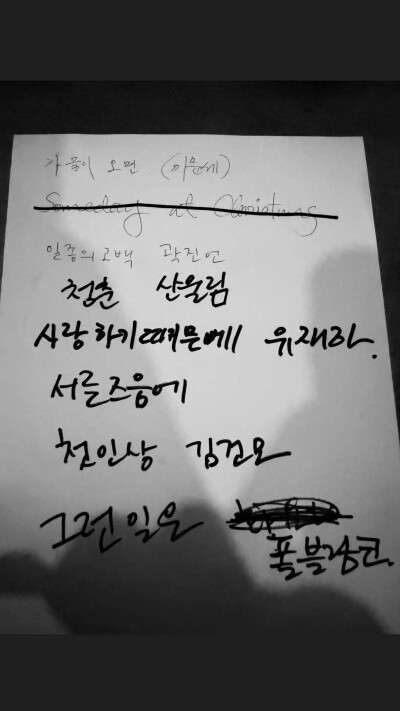 가을이 오면 (이문세)
Someday at Christmas
일종의 고백 곽진언
청춘 산울림
사랑하기때문에 유재하.
서른즈음에
첫인상 김건모
그런일은
폴블랑코.